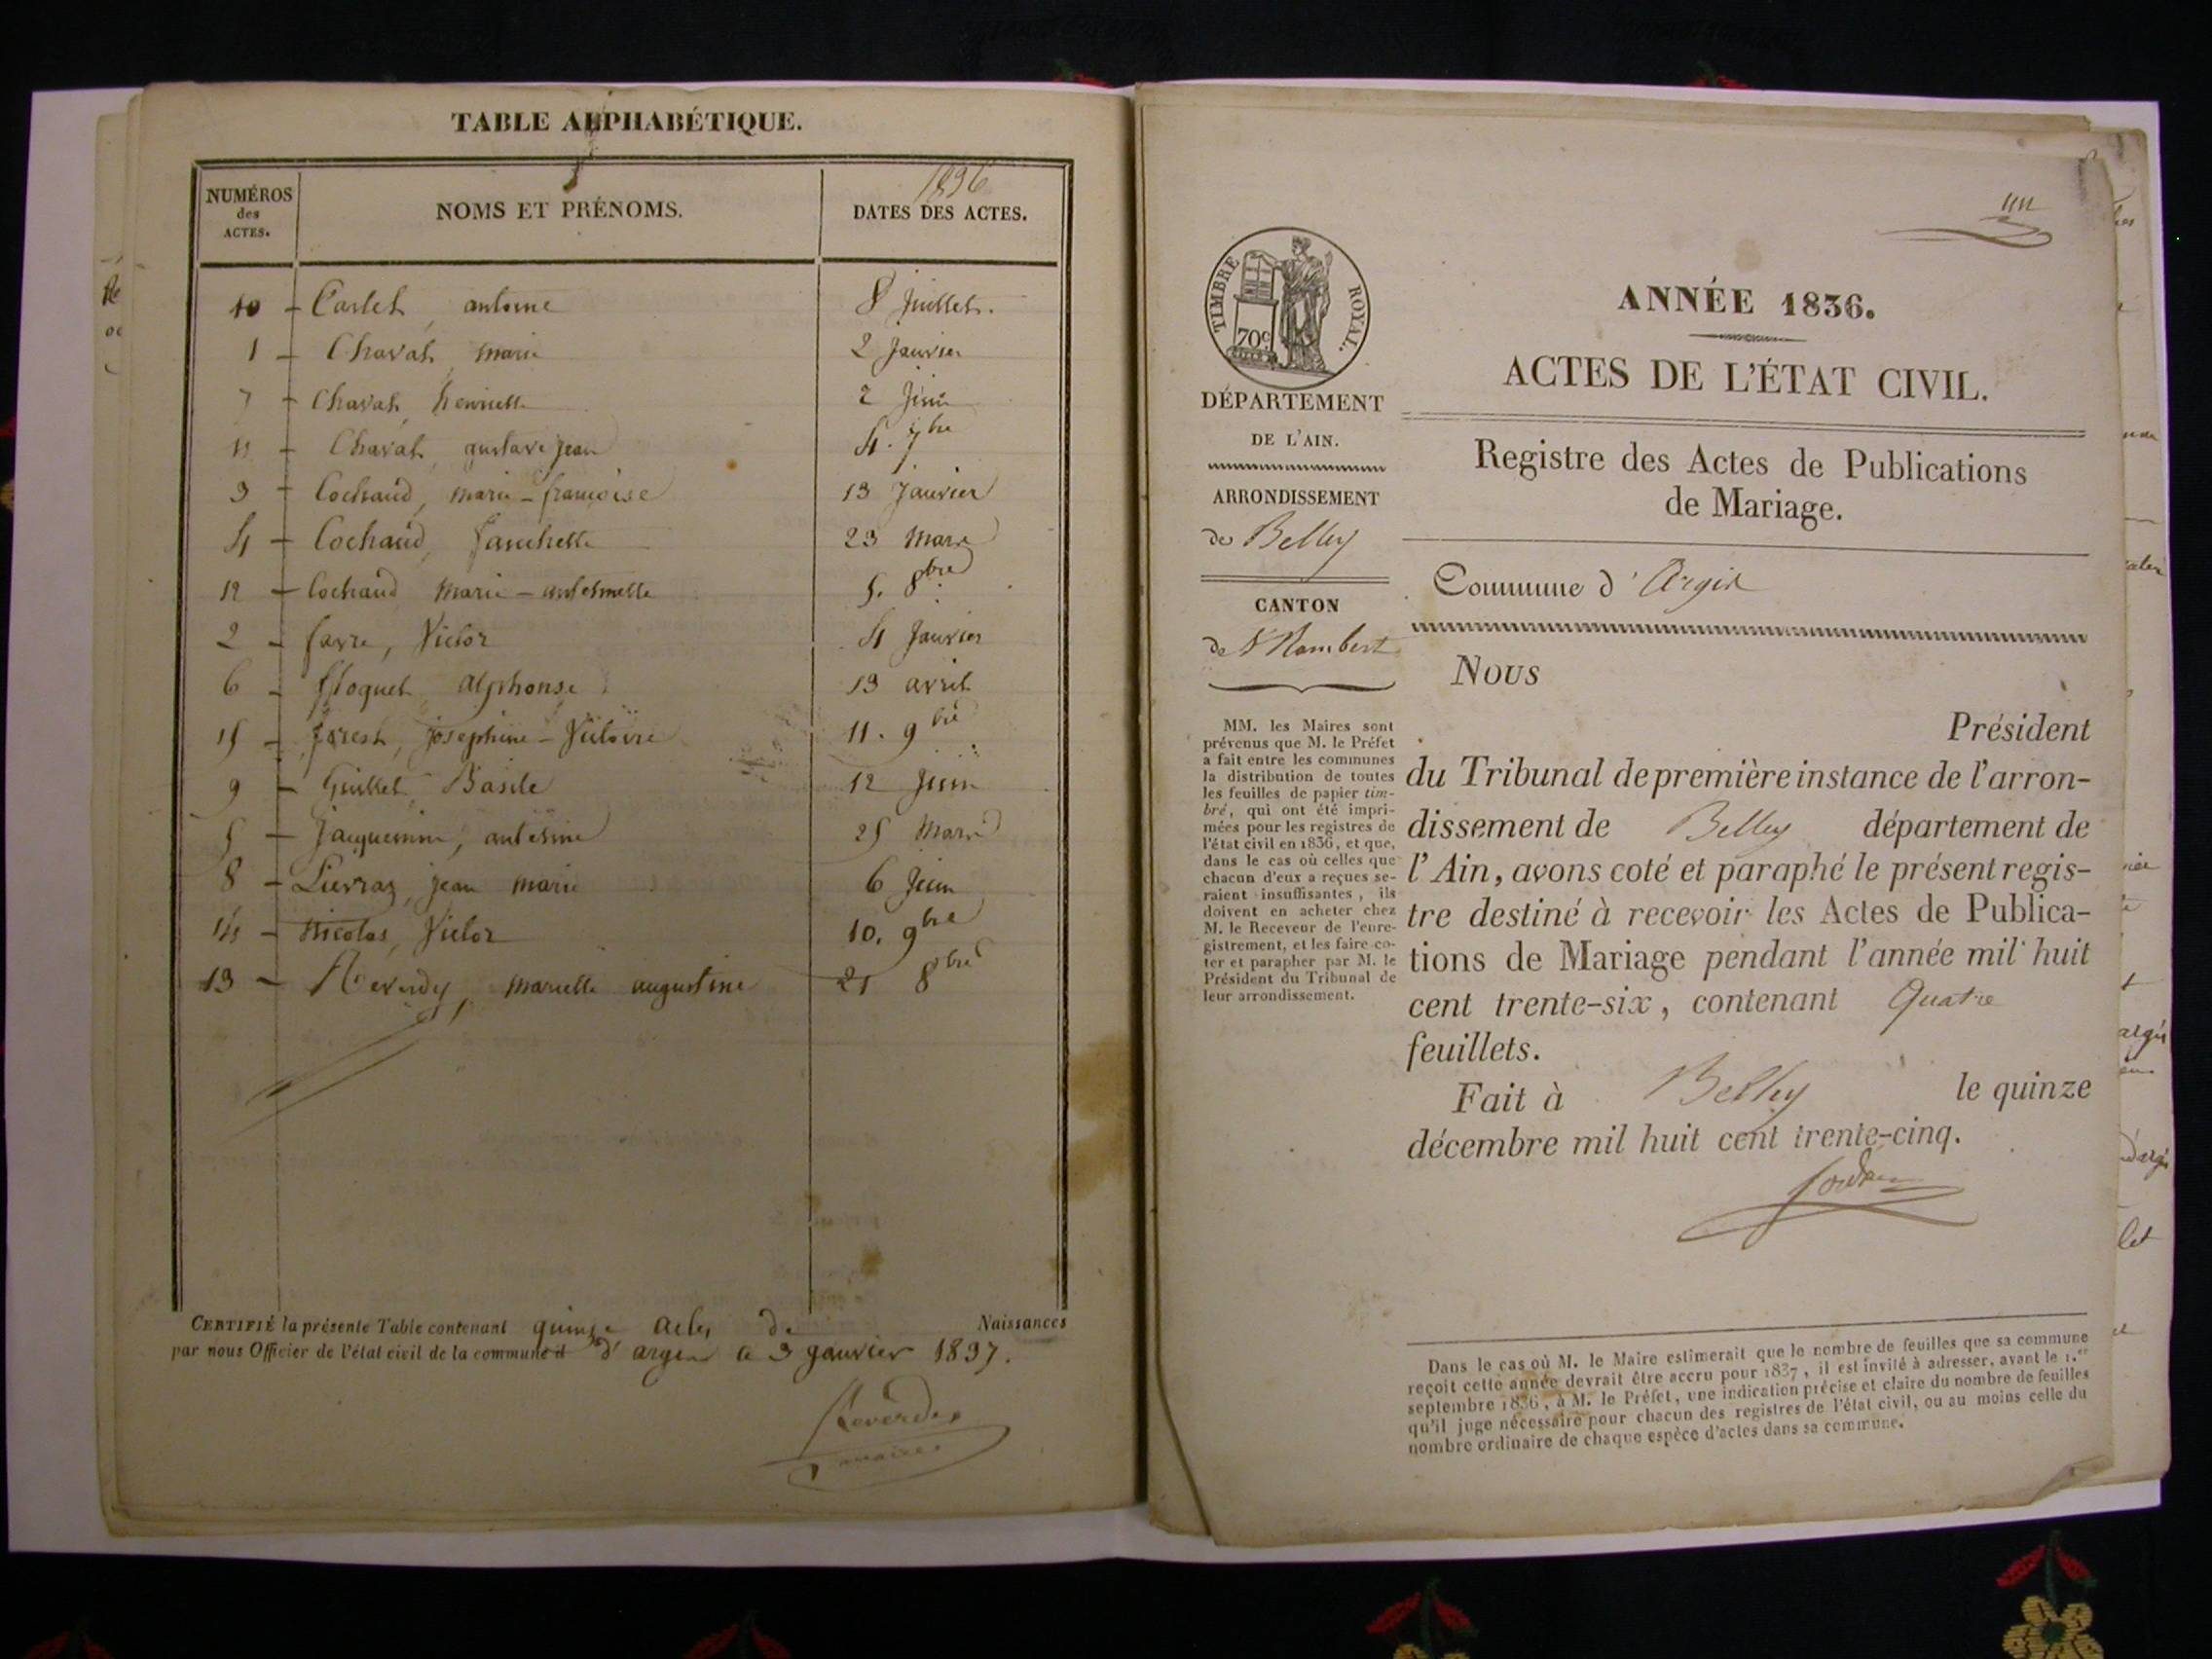 TABLE ALPHABÉTIQUE.
1836
NUMÉROS des ACTES. NOMS ET PRÉNOMS. DATES DES ACTES.
10 - Carlet, antoine 8 Juillet.
1 - Chavat, marie 2 Janvier
7 - Chavat, henriette 2 Juin
11 - Chavat, gustave jean 4. 7bre
3 - Cochaud, marie-françoise 13 Janvier
4 - Cochaud, fanchette 23 Mars
12 - Cochaud marie-antoinette 5. 8bre
2 - favre, Victor 4 Janvier
6 - floquet alphonse 13 avril
15 - forest, josephine-Victoire 11. 9bre
9 - Guillet Basile 12 Juin
5 - Jacquemin, antoine 25 Mars
8 - Lievraz, jean marie 6 Juin
14 - Nicolas, Victor 10. 9bre
13 - Reverdy, mariette augustine 21 8bre
CERTIFIÉ la présente Table contenant quinze actes de Naissances
par nous Officier de l'état civil de la commune d d'argis ce 3 janvier 1837.
Reverdy
maire
un
TIMBRE ROYAL.
70c
DÉPARTEMENT
DE L'AIN.
ARRONDISSEMENT
de Belley
CANTON
de St Rambert
MM. les Maires sont
prévenus que M. le Préfet
a fait entre les communes
la distribution de toutes
les feuilles de papier tim-
bré, qui ont été impri-
mées pour les registres de
l'état civil en 1836, et que,
dans le cas où celles que
chacun d'eux a reçues se-
raient insuffisantes, ils
doivent en acheter chez
M. le Receveur de l'enre-
gistrement, et les faire co-
ter et parapher par M. le
Président du Tribunal de
leur arrondissement.
ANNÉE 1836.
ACTES DE L'ÉTAT CIVIL.
Registre des Actes de Publications
de Mariage.
Commune d'Argis
Nous
Président
du Tribunal de première instance de l'arron-
dissement de Belley département de
l'Ain, avons coté et paraphé le présent regis-
tre destiné à recevoir les Actes de Publica-
tions de Mariage pendant l'année mil huit
cent trente-six, contenant Quatre
feuillets.
Fait à Belley le quinze
décembre mil huit cent trente-cinq.
Dans le cas où M. le Maire estimerait que le nombre de feuilles que sa commune
reçoit cette année devrait être accru pour 1837, il est invité à adresser, avant le 1.er
septembre 1836, à M. le Préfet, une indication précise et claire du nombre de feuilles
qu'il juge nécessaire pour chacun des registres de l'état civil, ou au moins celle du
nombre ordinaire de chaque espèce d'actes dans sa commune.